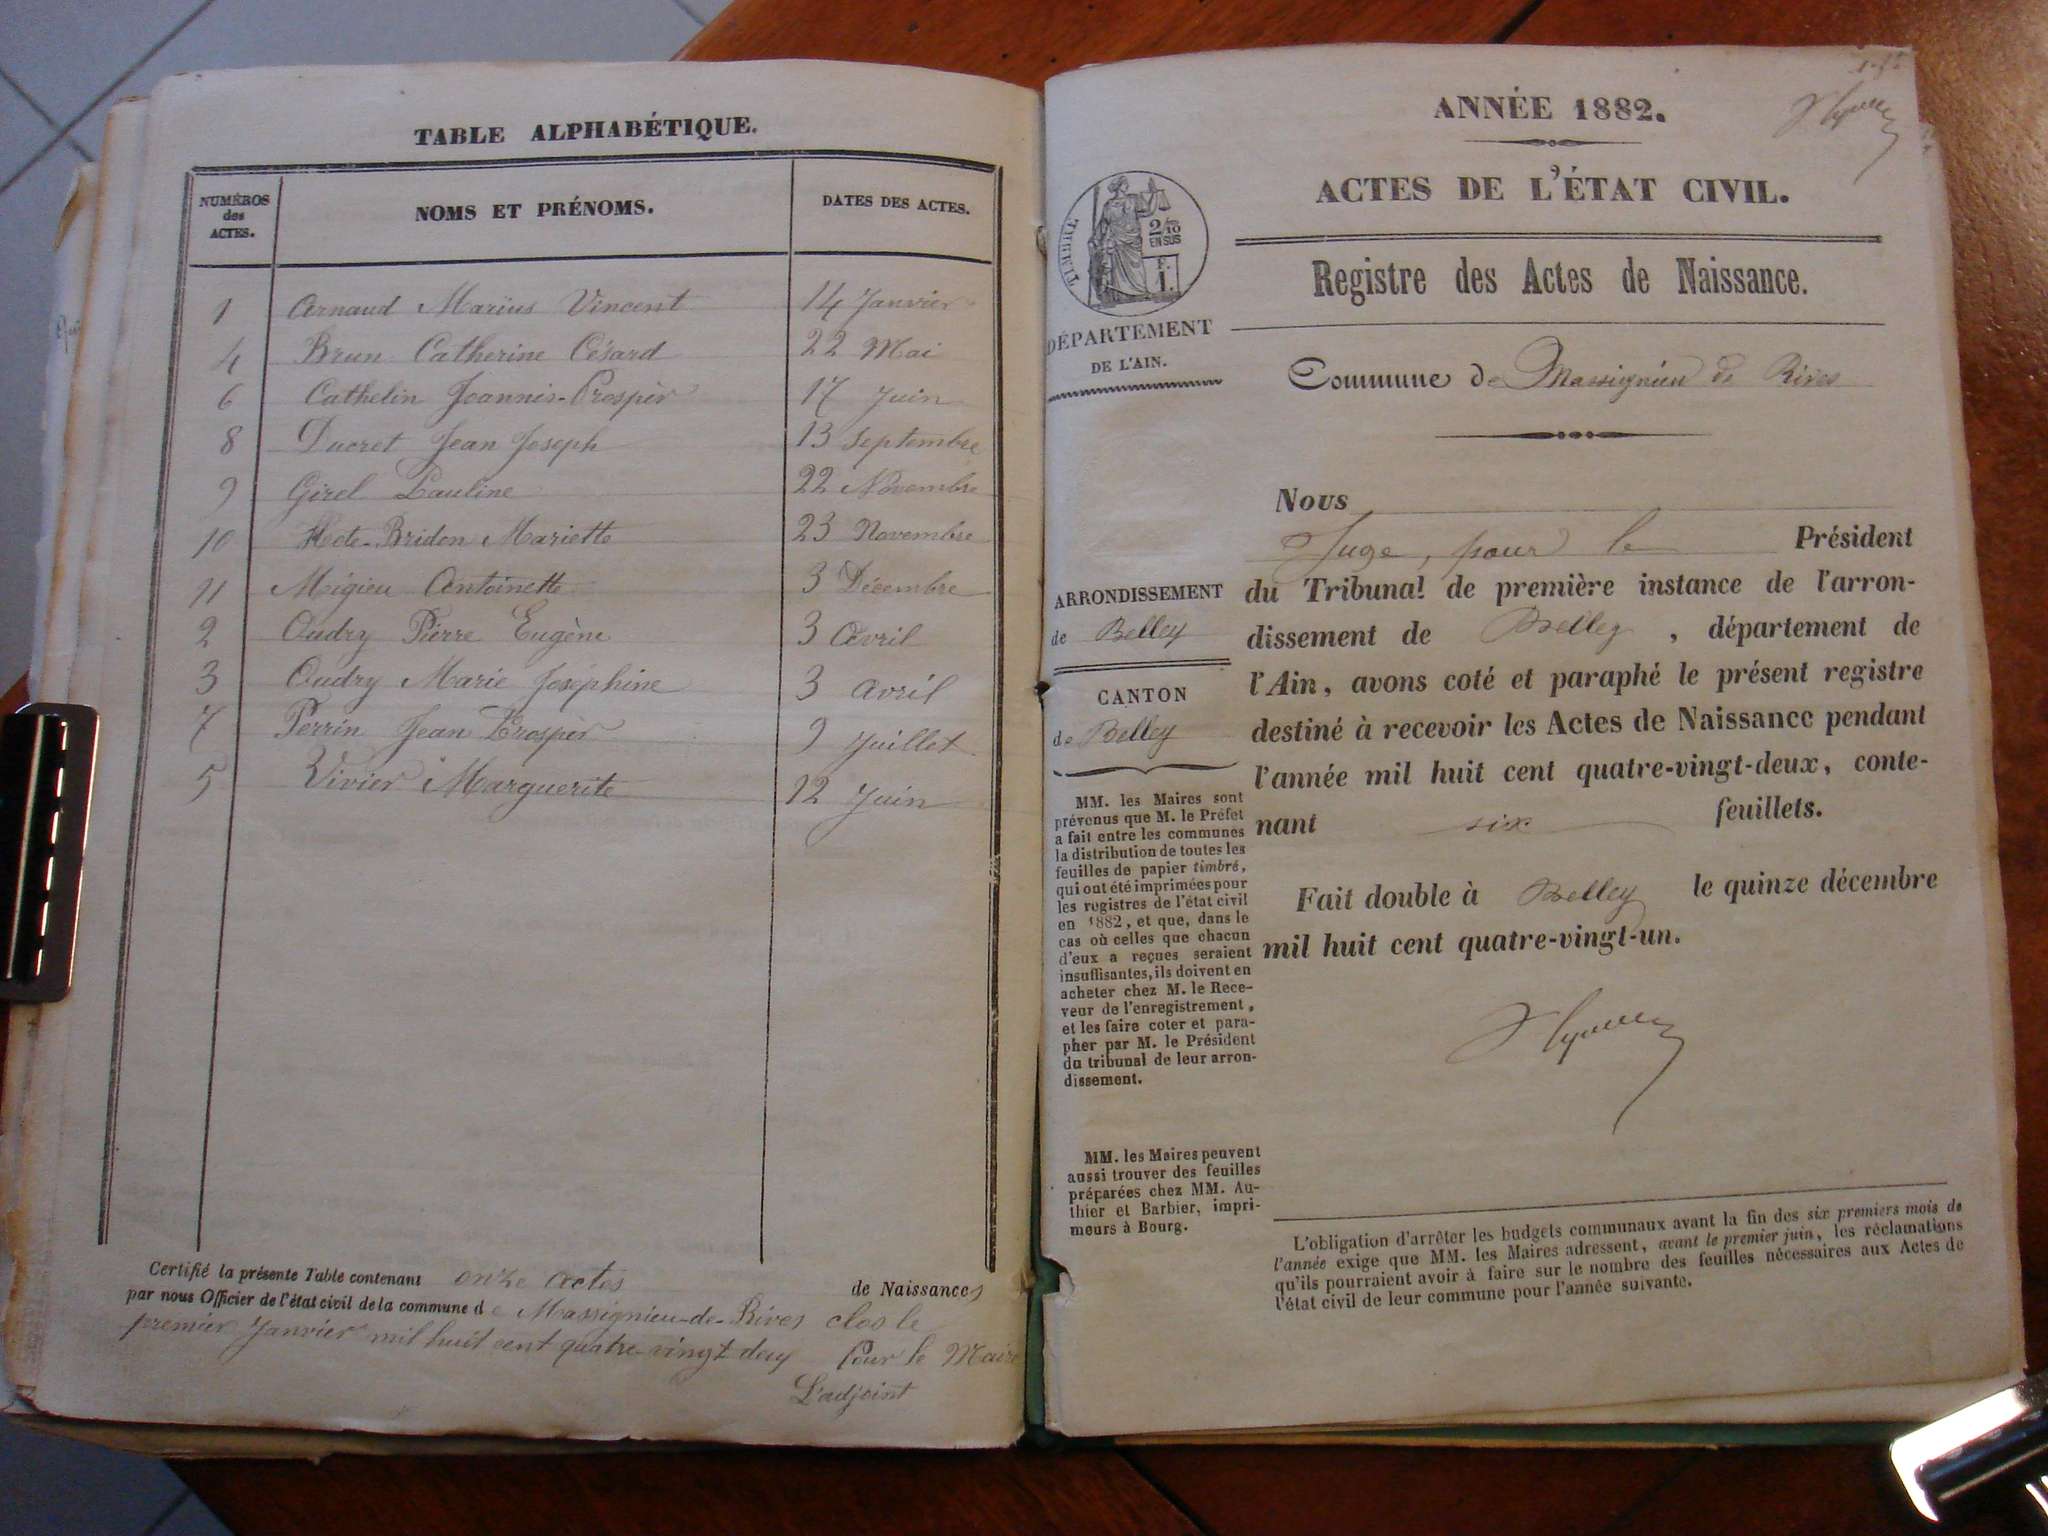 TABLE ALPHABÉTIQUE.
NUMÉROS des ACTES. NOMS ET PRÉNOMS. DATES DES ACTES.
1 Arnaud Marius Vincent 14 Janvier
4 Brun Catherine Césard 22 Mai
6 Cathelin Joannis-Prospèr 17 Juin
8 Ducret Jean Joseph 13 Septembre
9 Girel Pauline 22 Novembre
10 Hote-Bridon Mariette 23 Novembre
11 Migieu Antoinette 3 Décembre
2 Oudry Pierre Eugène 3 Avril
3 Oudry Marie Joséphine 3 Avril
7 Perrin Jean Prospèr 9 Juillet
5 Vivier Marguerite 12 Juin
Certifié la présente Table contenant onze actes de Naissances
par nous Officier de l'état civil de la commune de Massignieu-de-Rives clos le
premier Janvier mil huit cent quatre vingt deux Pour le Maire
L'adjoint
ANNÉE 1882.
ACTES DE L'ÉTAT CIVIL.
TIMBRE
2/10
EN SUS
F.
1.
Registre des Actes de Naissance.
DÉPARTEMENT
DE L'AIN.
Commune de Massignieu de Rives
Nous
Juge, pour le Président
du Tribunal de première instance de l'arron-
dissement de Belley, département de
l'Ain, avons coté et paraphé le présent registre
destiné à recevoir les Actes de Naissance pendant
l'année mil huit cent quatre-vingt-deux, conte-
nant six feuillets.
Fait double à Belley le quinze décembre
mil huit cent quatre-vingt-un.
ARRONDISSEMENT
de Belley
CANTON
de Belley
MM. les Maires sont
prévenus que M. le Préfet
a fait entre les communes
la distribution de toutes les
feuilles de papier timbré,
qui ont été imprimées pour
les registres de l'état civil
en 1882, et que, dans le
cas où celles que chacun
d'eux a reçues seraient
insuffisantes, ils doivent en
acheter chez M. le Rece-
veur de l'enregistrement,
et les faire coter et para-
pher par M. le Président
du tribunal de leur arron-
dissement.
MM. les Maires peuvent
aussi trouver des feuilles
préparées chez MM. Au-
thier et Barbier, impri-
meurs à Bourg.
L'obligation d'arrêter les budgets communaux avant la fin des six premiers mois de
l'année exige que MM. les Maires adressent, avant le premier juin, les réclamations
qu'ils pourraient avoir à faire sur le nombre des feuilles nécessaires aux Actes de
l'état civil de leur commune pour l'année suivante.